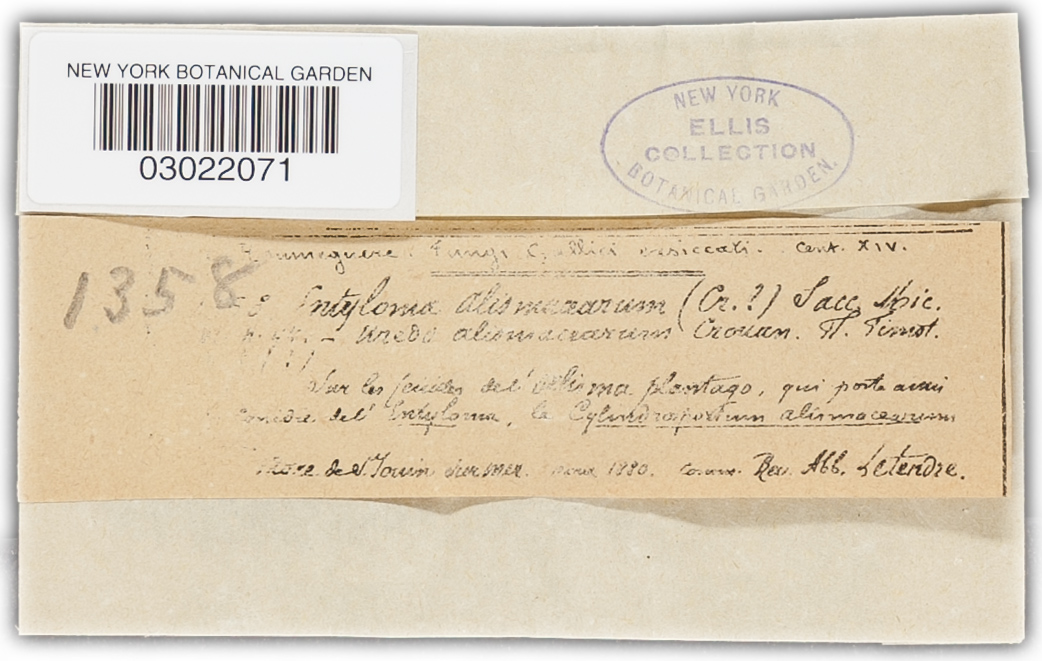 NEW YORK BOTANICAL GARDEN
03022071
NEW YORK
ELLIS
COLLECTION
BOTANICAL GARDEN.
Roumeguere. Fungi Gallici exsiccati. Cent. XIV.
1358
Entyloma alismacearum (Cr.?) Sacc. Mic.
– Uredo alismacearum Crouan. Fl. Finist.
Sur les feuilles de l'Alisma plantago, qui porte aussi
de l'Entyloma, le Cylindrosporium alismacearum
de St. Jouin sur mer. 1880. comm. Rev. Abb. Letendre.